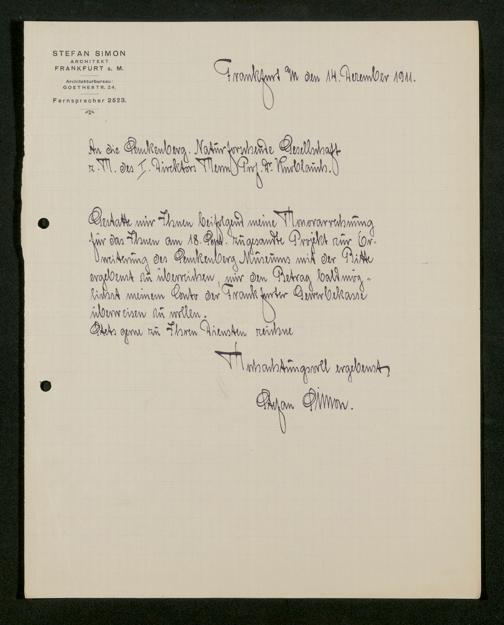 STEFAN SIMON
ARCHITEKT
FRANKFURT a. M.
Architekturbureau:
GOETHESTR. 24.
Fernsprecher 2523.
Frankfurt a/M den 14. Dezember 1911.
An die Senkenberg. Naturforschende Gesellschaft
z. H. des I. Direktors Herrn Prof. Dr. Knoblauch.
Gestatte mir Ihnen beifolgend meine Honorarrechnung
für das Ihnen am 18. Sept. zugesandte Projekt zur Er-
weiterung des Senkenberg Museums mit der Bitte
ergebenst zu überreichen, mir den Betrag baldmög-
lichst meinem Conto der Frankfurter Gewerbekasse
überweisen zu wollen.
Stets gerne zu Ihren Diensten zeichne
Hochachtungsvoll ergebenst,
Stefan Simon.